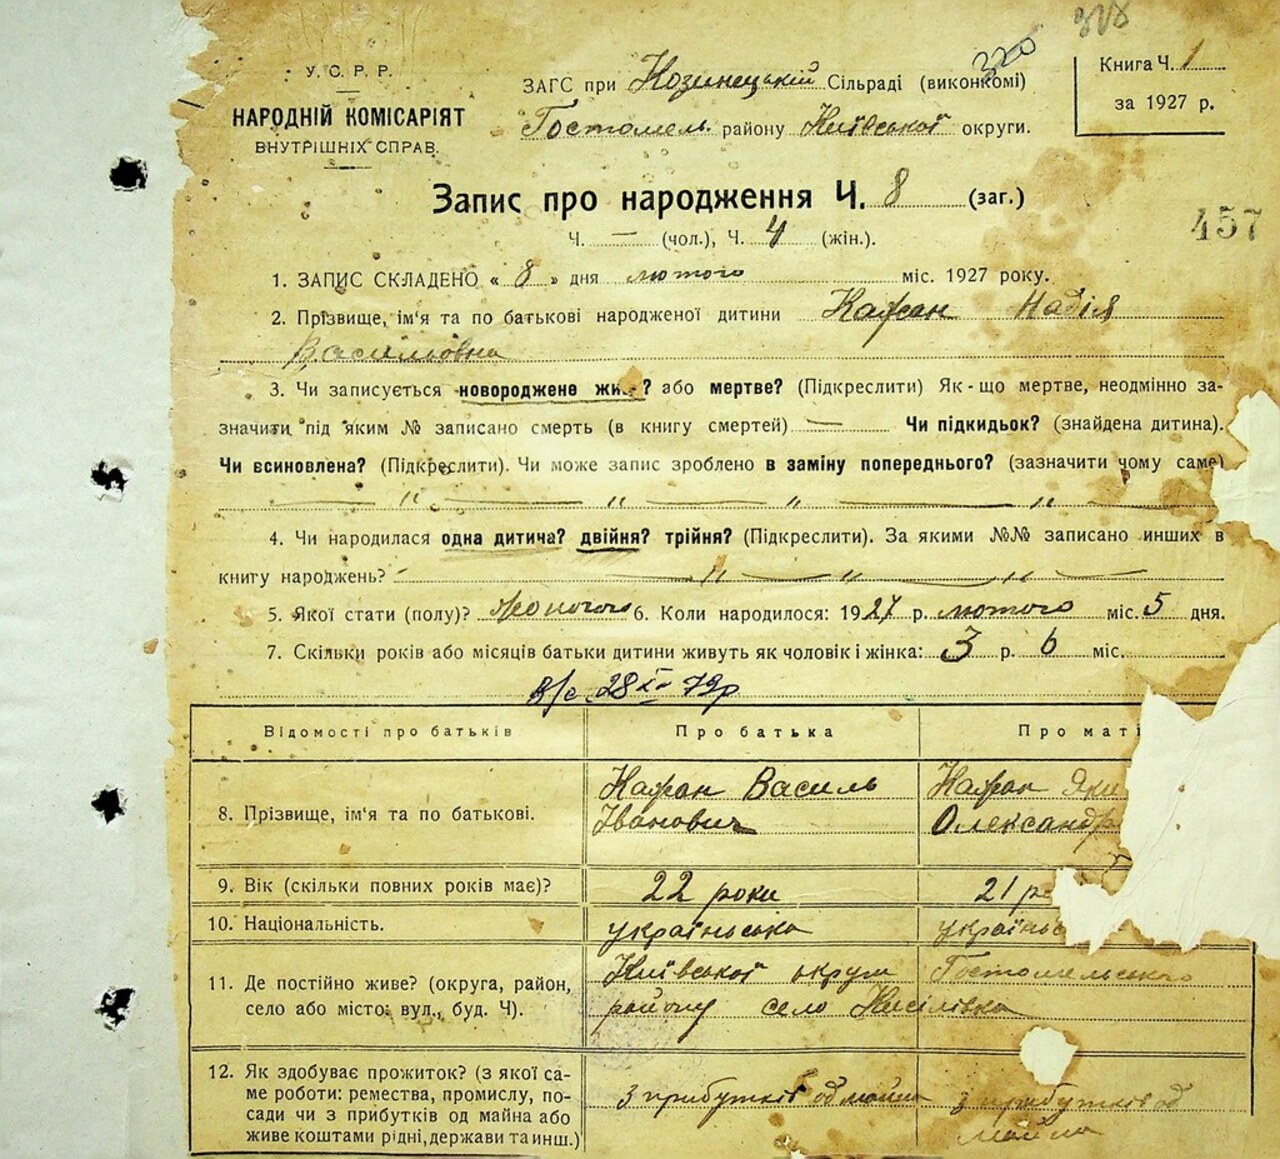 318
320
У. С. Р. Р.
НАРОДНІЙ КОМІСАРІЯТ
ВНУТРІШНІХ СПРАВ.
ЗАГС при Козинецькій Сільраді (виконкомі)
Гостомель. району Київської округи.
Книга Ч. 1
за 1927 р.
Запис про народження Ч. 8 (заг.)
Ч. — (чол.), Ч. 4 (жін.).
457
1. ЗАПИС СКЛАДЕНО « 8 » дня лютого міс. 1927 року.
2. Прізвище, ім'я та по батькові народженої дитини Кафан Надія
Васильовна
3. Чи записується новороджене жи ? або мертве? (Підкреслити) Як-що мертве, неодмінно за-
значити під яким № записано смерть (в книгу смертей) — Чи підкидьок? (знайдена дитина).
Чи всиновлена? (Підкреслити). Чи може запис зроблено в заміну попереднього? (зазначити чому саме)
— " — " — " — " —
4. Чи народилася одна дитича? двійня? трійня? (Підкреслити). За якими №№ записано инших в
книгу народжень? — " — " — " —
5. Якої стати (полу)? жоночого 6. Коли народилося: 1927 р. лютого міс. 5 дня.
7. Скільки років або місяців батьки дитини живуть як чоловік і жінка: 3 р. 6 міс.
28 79р
Відомості про батьків
Про батька
Про маті
8. Прізвище, ім'я та по батькові.
Кафан Василь
Іванович
Кафан Яки
Олександр
9. Вік (скільки повних років має)?
22 роки
21 ро
10. Національність.
українська
україньс
11. Де постійно живе? (округа, район,
село або місто: вул., буд. Ч).
Київської округи Гостомельського
району село Кисілівка
12. Як здобуває прожиток? (з якої са-
ме роботи: ремества, промислу, по-
сади чи з прибутків од майна або
живе коштами рідні, держави та инш.)
З прибутків од майна
З прибутків од
майна